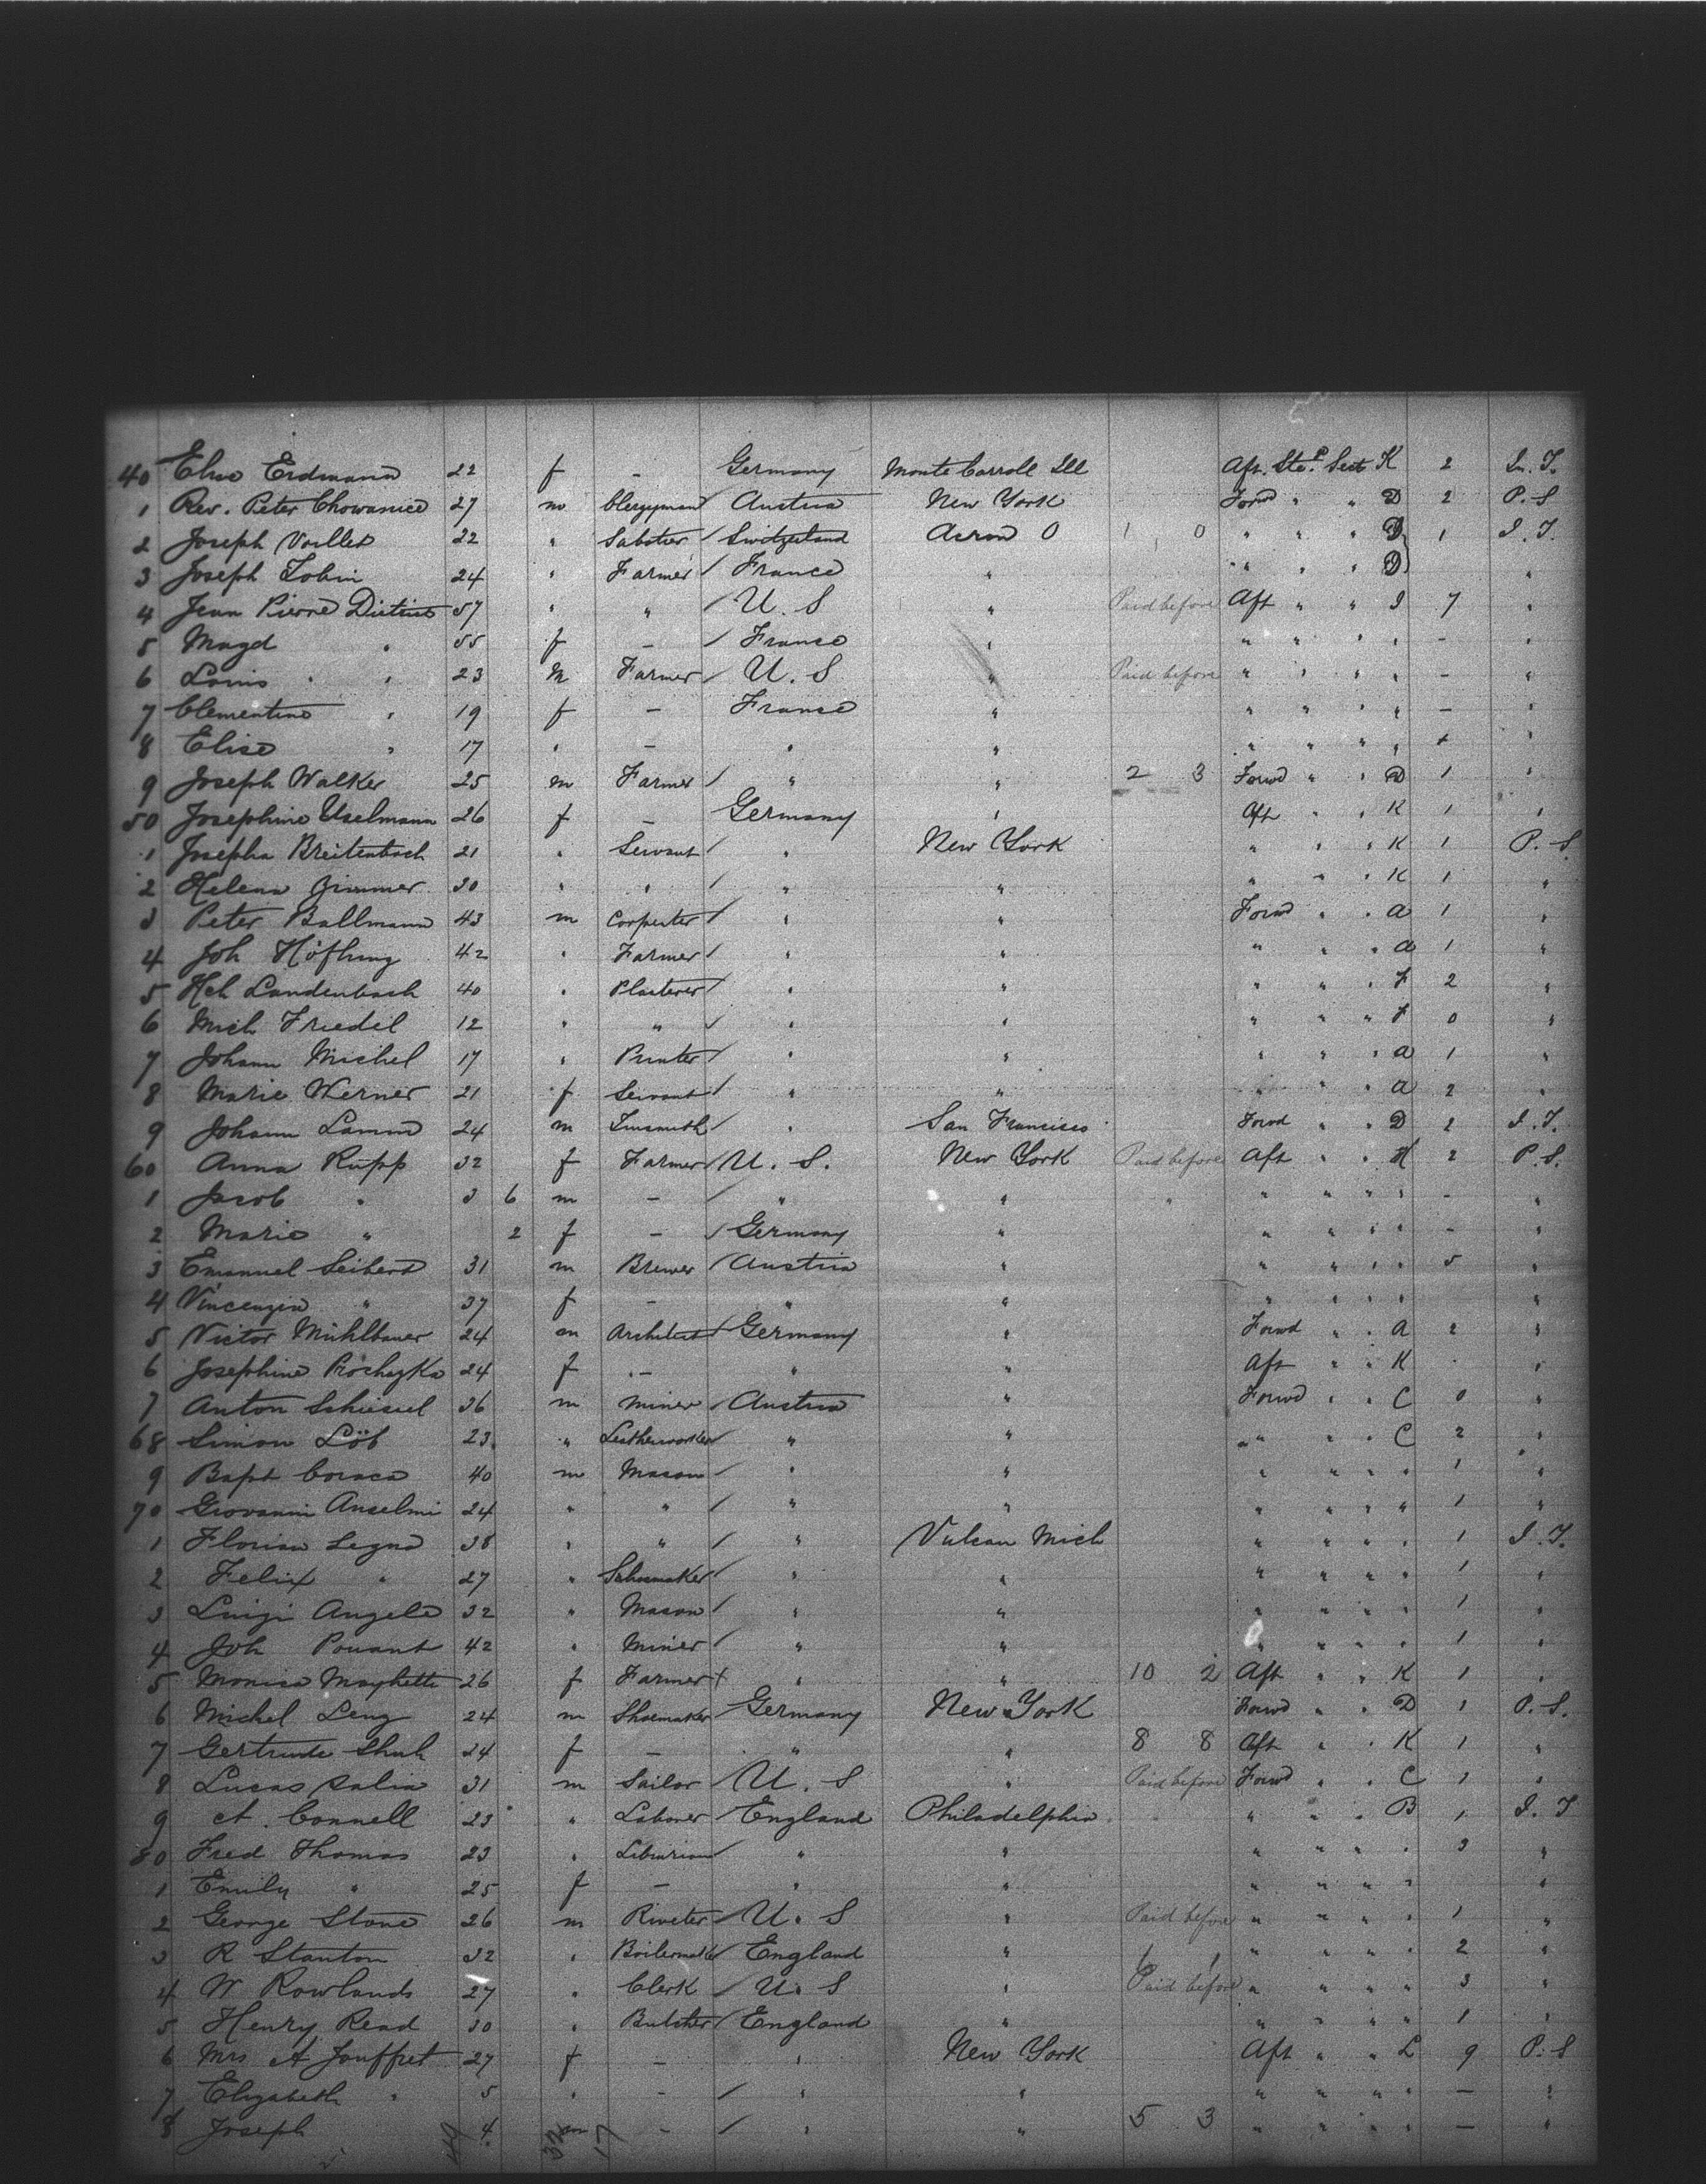 40 Elise Erdmann 22 f - Germany Monte Carroll Ill Aft. Ste. Sect K 2 In. T.
1 Rev. Peter Chowaniec 27 m Clergyman Austria New York Forwd " " D 2 P. S
2 Joseph 22 " Sabotier / Switzerland O 1 0 " " " D 1 I. T.
3 Joseph Tobin 24 " Farmer / France " " " " D "
4 Jean Pierre 57 " " / U. S " Paid before Aft " " I 7 "
5 Magd " 55 f - / France " " " " " - "
6 Louis " " 23 M Farmer / U. S " Paid before " " " " - "
7 Clementine " 19 f - France " " " " " - "
8 Elise " 17 " - " " " " " " "
9 Joseph Walker 25 m Farmer / " " 2 3 Forwd " " D 1 "
50 Josephine Uselmann 26 f - Germany " Aft " " K 1 "
1 Josepha Breitenbach 21 " Servant / " New York " " " K 1 P. S.
2 Helena Zimmer 30 " " / " " " " " K 1 "
3 Peter Ballmann 43 m Carpenter / " " Forwd " " a 1 "
4 Joh Höfling 42 " Farmer / " " " " " a 1 "
5 Hch Landenbach 40 " Plasterer / " " " " " F 2 "
6 Mich Friedel 12 " " / " " " " " F 0 "
7 Johann Michel 17 " Printer / " " " " " a 1 "
8 Marie Werner 21 f Servant / " " " " " a 2 "
9 Johann Lamm 24 m Tinsmith / " San Francisco Forwd " " D 2 I. T.
60 Anna Rupp 32 f Farmer / U. S. New York Paid before Aft " " H 2 P. S.
1 Jacob " 3 6 m - / " " " " " " " - "
2 Marie " 2 f - / Germany " " " " " - "
3 Emanuel Seibert 31 m Brewer / Austria " " " " " 5 "
4 Vincenzia " 37 f - " " " " " " "
5 Victor Mühlbauer 24 m Architect / Germany " Forwd " " A 2 "
6 Josephine Prochazka 24 f - " " Aft " " K "
7 Anton 36 m Miner / Austria " Forwd " " C 0 "
68 Simon Löb 23 " Leatherworker / " " " " " C 2 "
9 Bapt Coraca 40 m Mason / " " " " " " 1 "
70 Giovanni Anselmi 24 " " / " " " " " " 1 "
1 Florian 38 " " / " Vulcan Mich " " " " 1 I. T.
2 Felix " 27 " Schoemaker / " " " " " " 1 "
3 Luigi Angele 32 " Mason / " " " " " " 1 "
4 Joh 42 " Miner / " " " " " " 1 "
5 Monica 26 f Farmer + " " 10 2 Aft " " K 1 "
6 Michel Leng 24 m Shoemaker Germany New York Forwd " " D 1 P. S.
7 Gertrude Shuh 24 f - " " 8 8 Aft " " K 1 "
8 Lucas Salia 31 m Sailor / U. S " Paid before Forwd " " C 1 "
9 A. Connell 23 " Laborer / England Philadelphia " " " B 1 I. T
80 Fred Thomas 23 " Librarian / " " " " " " 3 "
1 Emily " 25 f - " " " " " " "
2 George Stone 26 m Riveter / U. S " Paid before " " " " 1 "
3 R Stanton 32 " Boilermaker / England " 1 1 " " " " 2 "
4 W Rowlands 27 " Clerk / U. S " Paid before " " " " 3 "
5 Henry Read 30 " Butcher / England " " " " " 1 "
6 Mrs A Jouffret 27 f - " New York Aft " " L 9 P. S
7 Elizabeth " 5 " - / " " " " " " - "
8 Joseph 4 m - / " " 5 3 " " " " - "
17